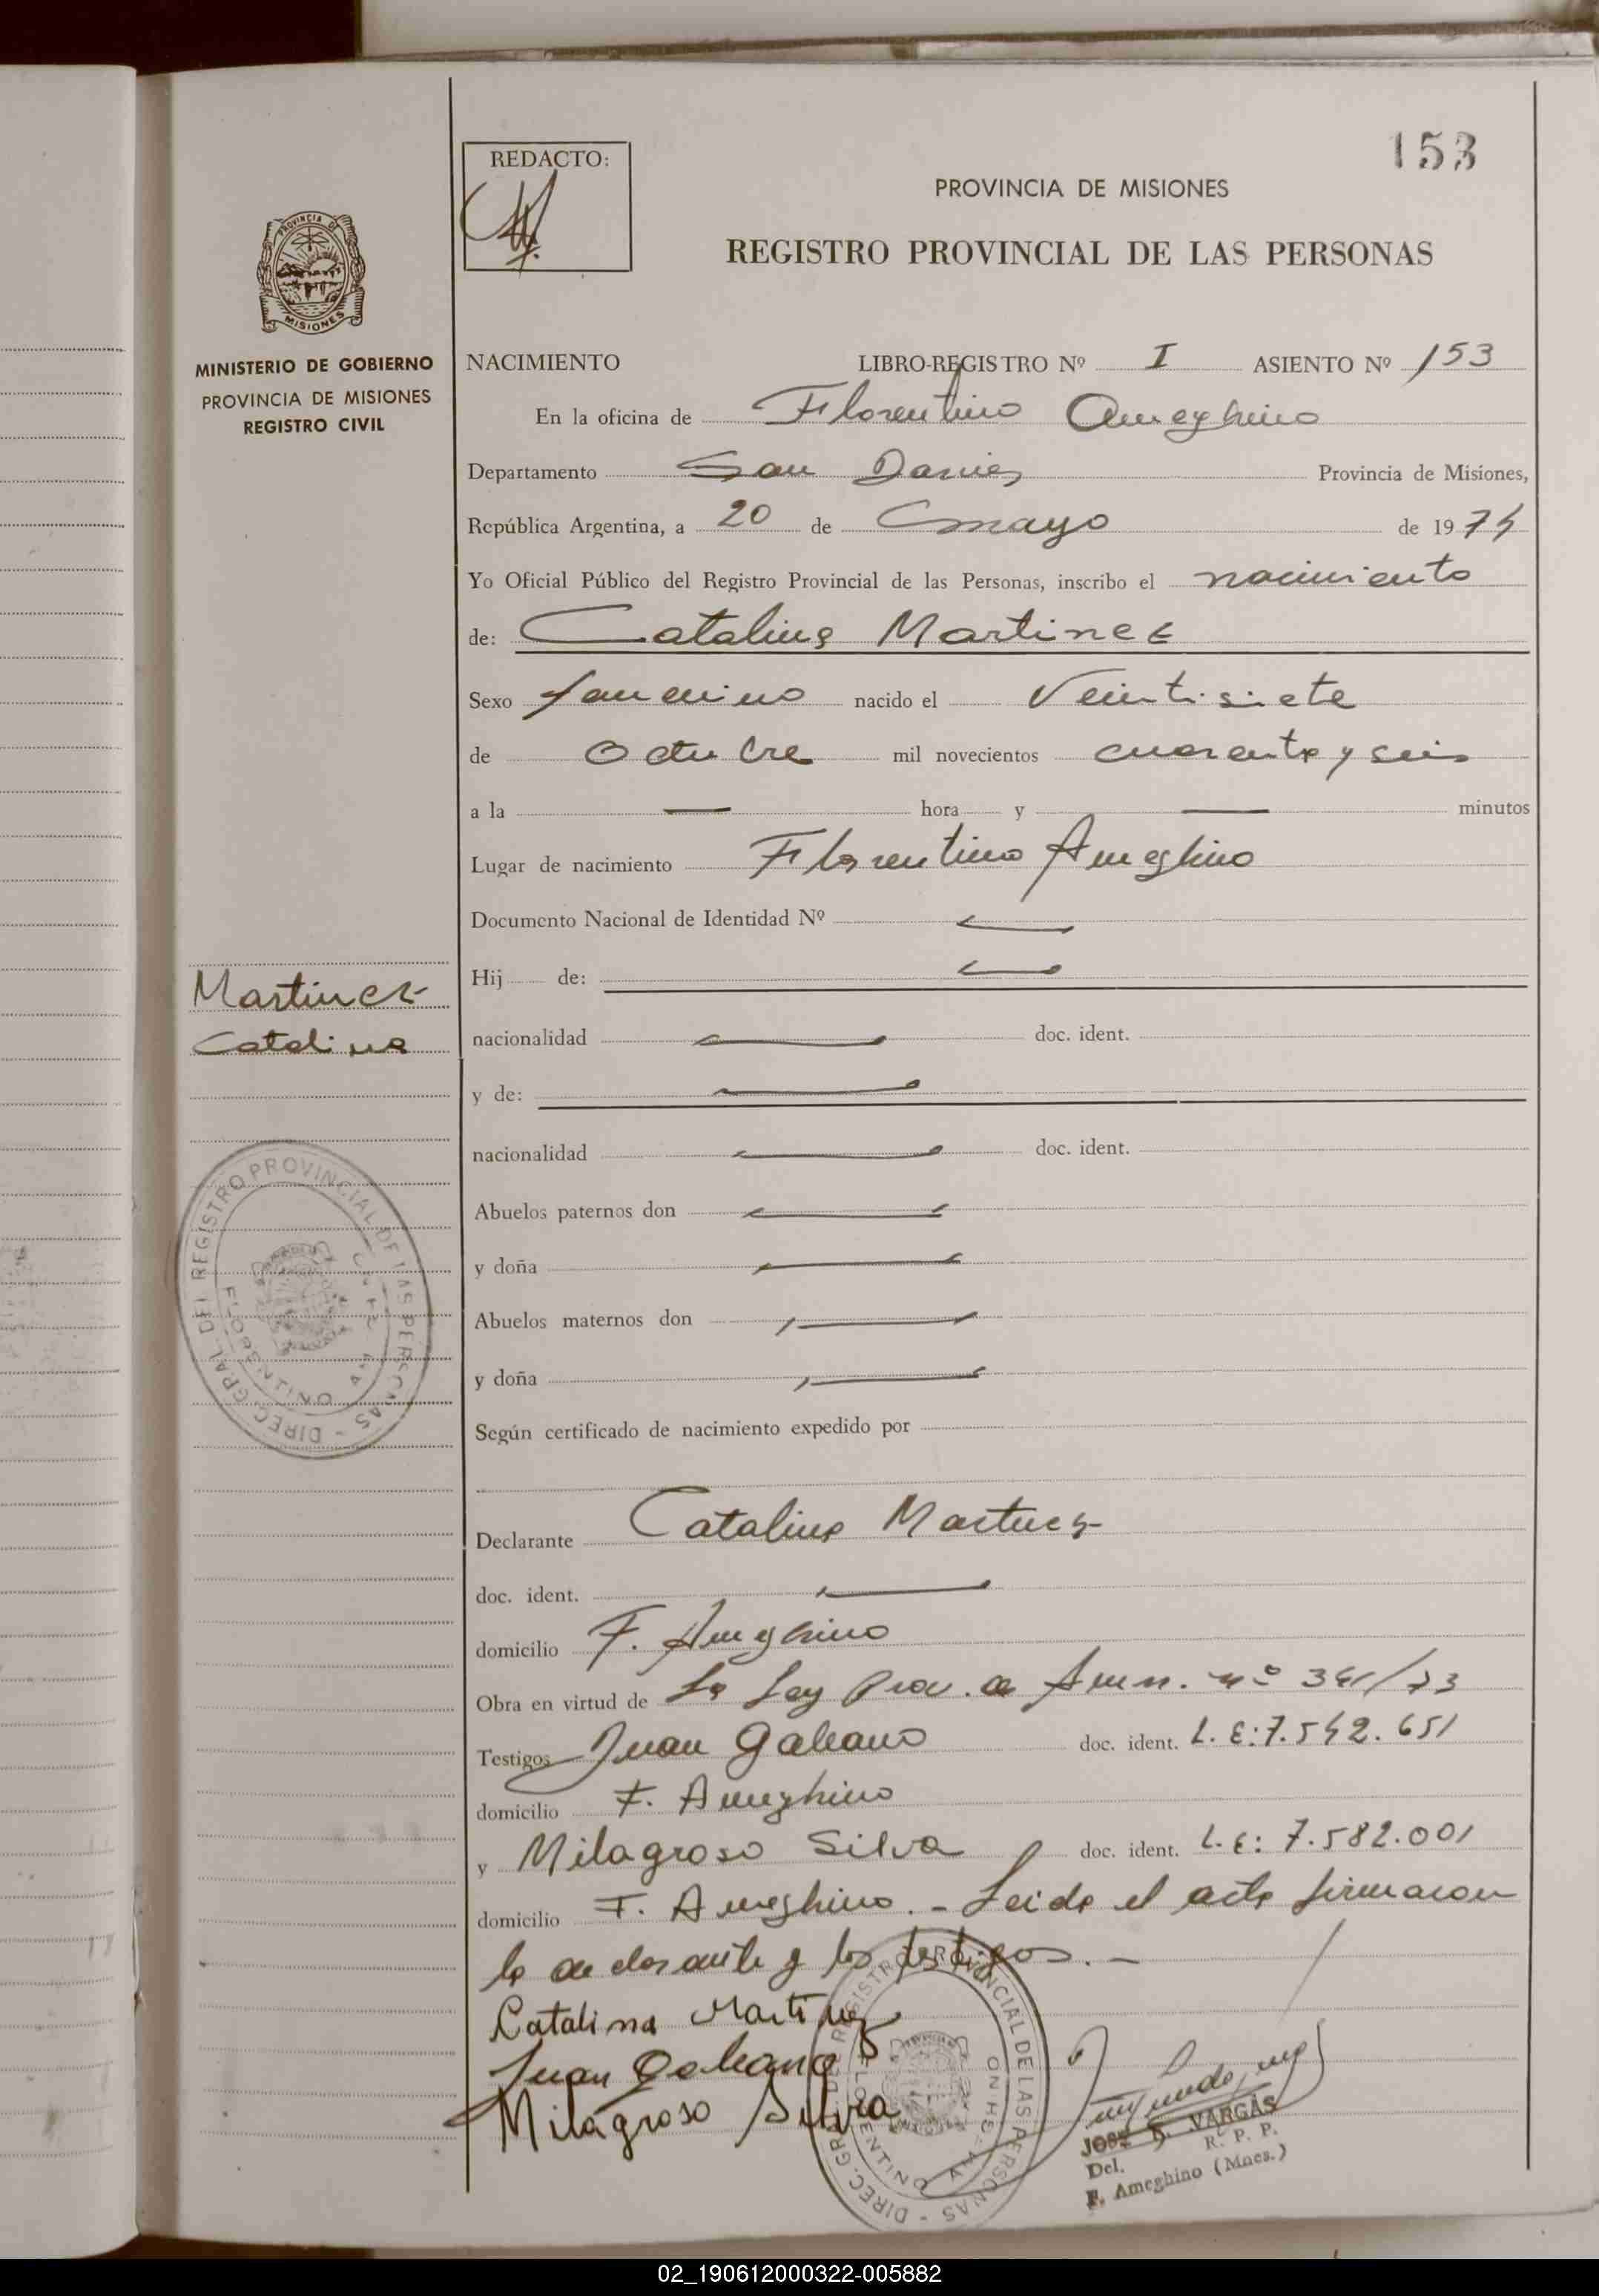 153
REDACTO:
PROVINCIA DE MISIONES
REGISTRO PROVINCIAL DE LAS PERSONAS
PROVINCIA DE MISIONES
MINISTERIO DE GOBIERNO
PROVINCIA DE MISIONES
REGISTRO CIVIL
NACIMIENTO LIBRO-REGISTRO Nº I ASIENTO Nº 153
En la oficina de Florentino Ameghino
Departamento San Javier Provincia de Misiones,
República Argentina, a 20 de mayo de 1974
Yo Oficial Público del Registro Provincial de las Personas, inscribo el nacimiento
de: Catalina Martinez
Sexo femenino nacido el Veintisiete
de Octubre mil novecientos cuarenta y seis
a la — hora y — minutos
Lugar de nacimiento Florentino Ameghino
Documento Nacional de Identidad Nº —
Hij de: —
Martinez
Catalina
nacionalidad — doc. ident.
y de: —
nacionalidad — doc. ident.
Abuelos paternos don —
y doña —
Abuelos maternos don —
y doña —
DIREC. GRAL DEL REGISTRO PROVINCIAL DE LAS PERSONAS -
FLORENTINO
Según certificado de nacimiento expedido por
Declarante Catalina Martinez
doc. ident. —
domicilio F. Ameghino
Obra en virtud de la Ley Prov. de Amn. nº 341/73
Testigos Juan Galeano doc. ident. L. E: 7.542.651
domicilio F. Ameghino
y Milagroso Silva doc. ident. L. E: 7.582.001
domicilio F. Ameghino. - Leida el acta firmaron
la declarante y los testigos. -
Catalina Martinez
Juan Galeano
Milagroso Silva
DIREC. GRAL DEL REGISTRO PROVINCIAL DE LAS PERSONAS -
FLORENTINO AMEGHINO
JOSE VARGAS
Del. R. P. P.
F. Ameghino (Mnes.)
02_190612000322-005882